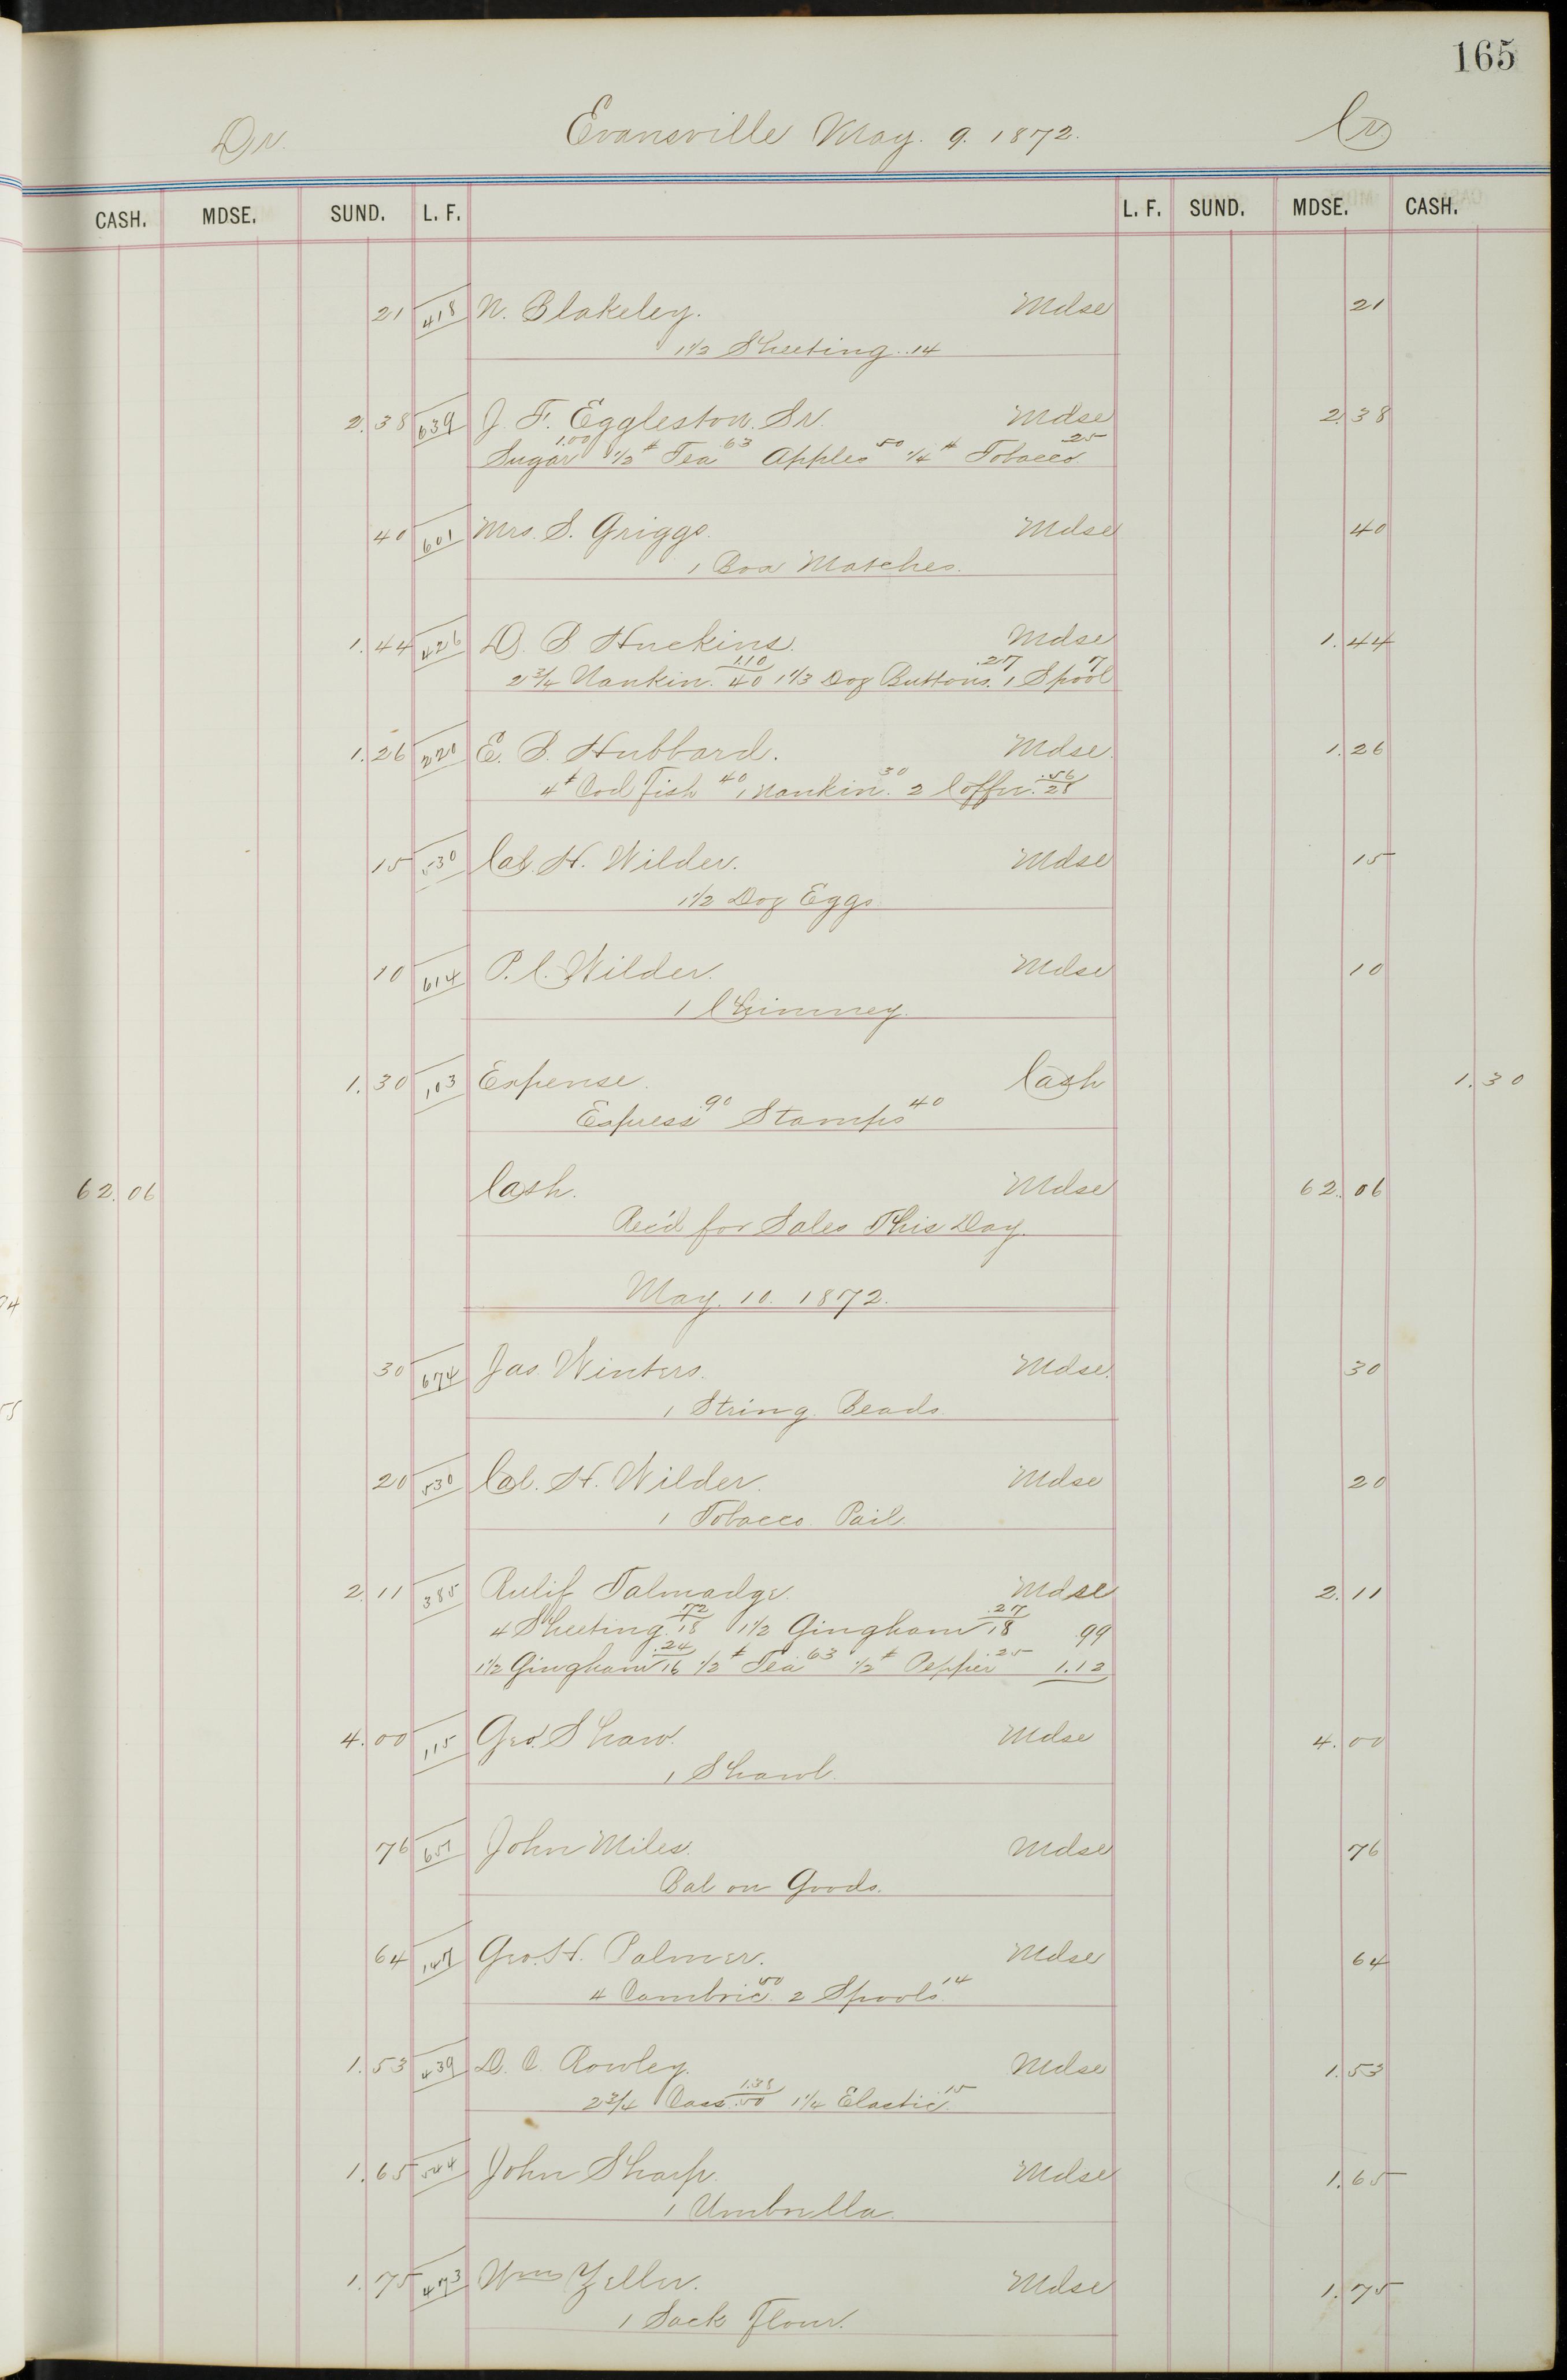 165
Dr. Evansville May. 9. 1872. Cr
CASH. MDSE. SUND. L. F. L. F. SUND. MDSE. CASH.
21 418 N. Blakeley. Mdse 21
1 1/2 Sheeting .14
2.38 639 J. F. Eggleston. Sr. Mdse 2.38
Sugar 1.00 1/2 # Tea 63 Apples 50 1/4 # Tobacco 25
40 601 Mrs. S. Griggs. Mdse 40
1 Box Matches.
1.44 426 D. B Huckins. Mdse 1.44
2 3/4 Nankin. 1.10/40 1 1/3 Doz Buttons. .27 1 Spool 7
1.26 220 E. B. Hubbard. Mdse. 1.26
4 # Cod Fish 40 1 Nankin. 30 2 Coffee. .56/28
15 530 Cal. H. Wilder. Mdse 15
1 1/2 Doz Eggs
10 614 P. C. Wilder. Mdse 10
1 Chimney.
1.30 103 Expense. Cash 1.30
Express .90 Stamps 40
62.06 Cash. Mdse 62.06
Rec'd for Sales This Day.
May. 10. 1872.
30 674 Jas Winters. Mdse. 30
1 String Beads.
20 530 Cal. H. Wilder. Mdse 20
1 Tobacco Pail.
2.11 385 Rulif Talmadge. Mdse 2.11
4 Sheeting .72/18 1 1/2 Gingham .27/18 99
1 1/2 Gingham .24/16 1/2 # Tea 63 1/2 # Pepper .25 1.12
4.00 115 Geo. Shaw. Mdse 4.00
1 Shawl.
76 657 John Miles. Mdse 76
Bal on Goods.
64 147 Geo. H. Palmer. Mdse 64
4 Cambric 50 2 Spools 14
1.53 439 D. C. Rowley. Mdse 1.53
2 3/4 Cass 1.38/.50 1 1/4 Elastic .15
1.65 544 John Sharp. Mdse 1.65
1 Umbrella.
1.75 473 Wm Zeller. Mdse 1.75
1 Sack Flour.